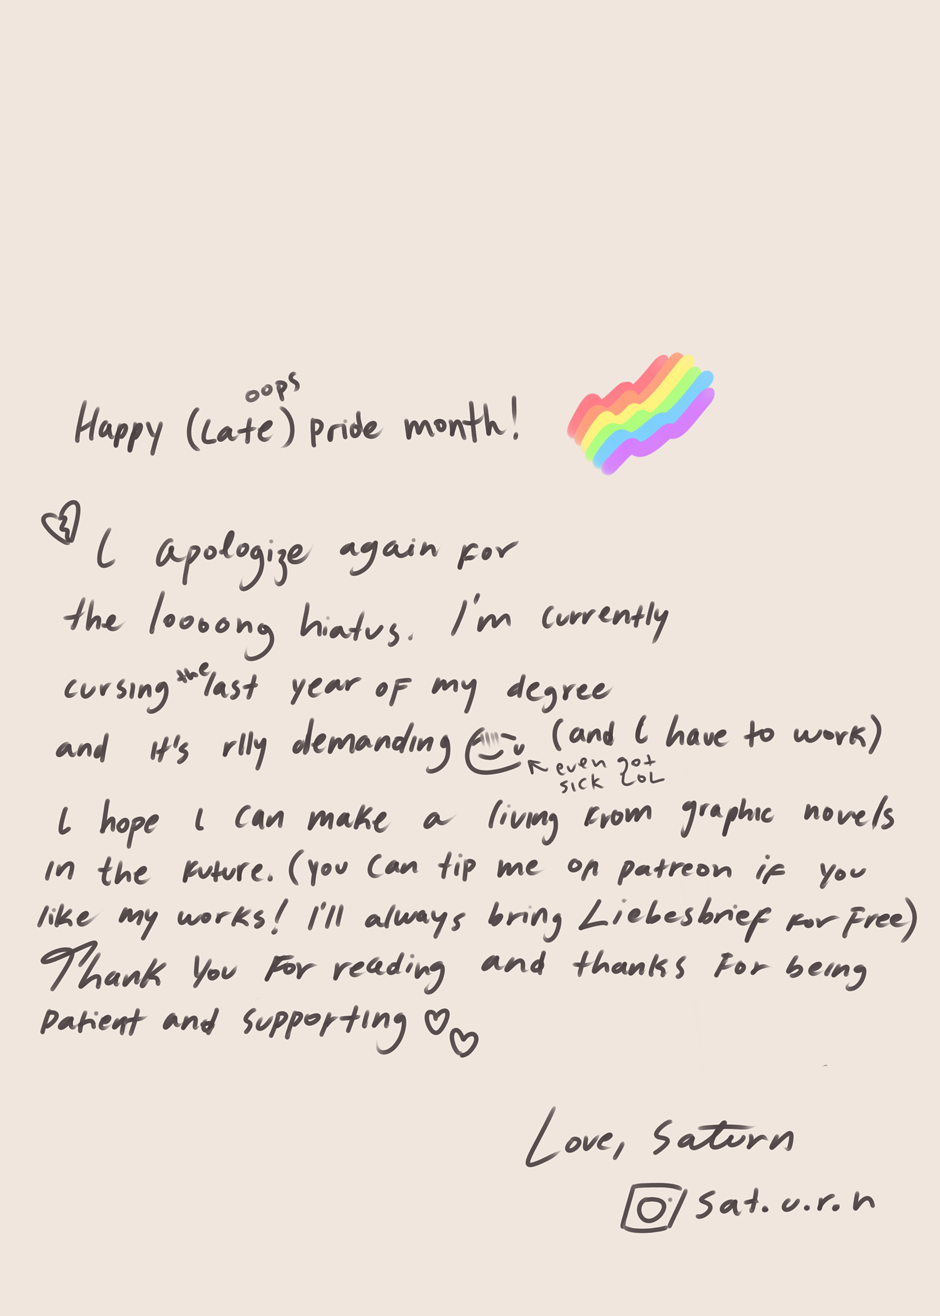 oops
Happy (Late) pride month!
I apologize again for
the loooong hiatus. I'm currently
cursing the last year of my degree
and it's rlly demanding (and I have to work)
even got
sick LOL
I hope I can make a living from graphic novels
in the future. (you can tip me on patreon if you
like my works! I'll always bring Liebesbrief for free)
Thank you for reading and thanks for being
patient and supporting
Love, Saturn
sat.u.r.n